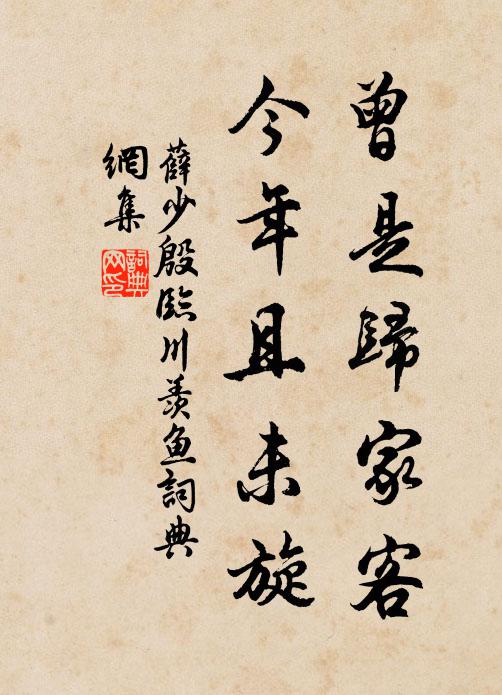 曾是歸家客
今年且未旋
薛少殷臨川羨魚詞典
網集
詞典
网印